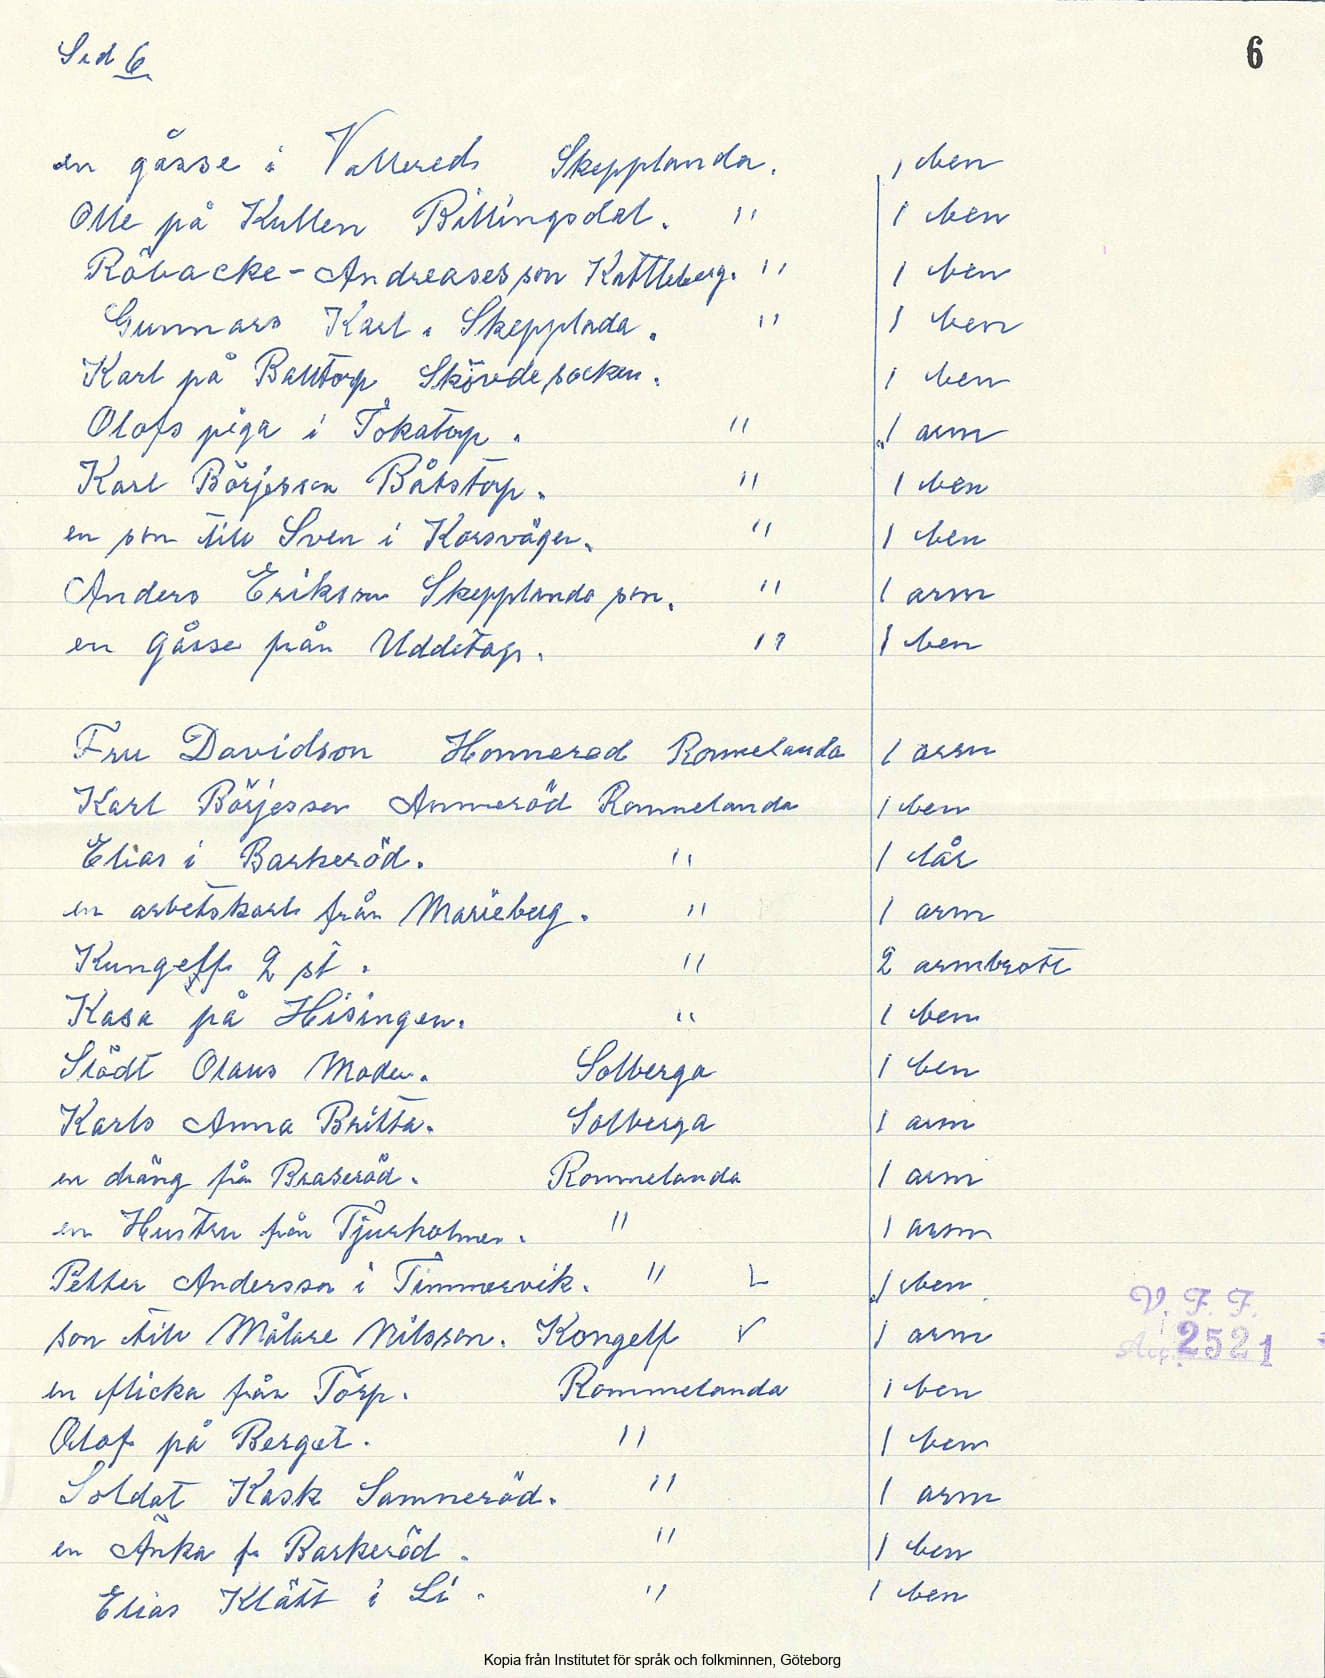 Sid 6 6
en gåsse i Vallereds Skepplanda. 1 ben
Olle på Kullen Billingsdal. " 1 ben
Röbacke-Andreasesson Kattleberg. " 1 ben
Gunnars Karl. Skepplada. " 1 ben
Karl på Balltorp Skövde socken. 1 ben
Olofs piga i Tokatorp. " 1 arm
Karl Börjesson Båtstorp. " 1 ben
en son till Sven i Korsvägen. " 1 ben
Anders Erikson Skepplanda son. " 1 arm
en Gåsse från Uddetorp. " 1 ben
Fru Davidson Honnerød Rommelanda 1 arm
Karl Börjesson Ammeröd Rommelanda 1 ben
Elias i Barkeröd. " 1 lår
en arbetskarl från Marieberg. " 1 arm
Kungelf 2 st. " 2 armbrott
Kasa på Hisingen. " 1 ben
Slödt Olaus Moder. Solberga 1 ben
Karls Anna Britta. Solberga 1 arm
en dräng från Braseröd. Rommelanda 1 arm
en Hustru från Tjurholmen. " 1 arm
Petter Andersson i Timmervik. " L 1 ben
son till Målare Nilsson. Kongelf V 1 arm
V. F. F.
Acc. 2521
en flicka från Torp. Rommelanda 1 ben
Olof på Berget. " 1 ben
Soldat Kask Samneröd. " 1 arm
en Änka fr Barkeröd. " 1 ben
Elias Klätt i Li. " 1 ben
Kopia från Institutet för språk och folkminnen, Göteborg